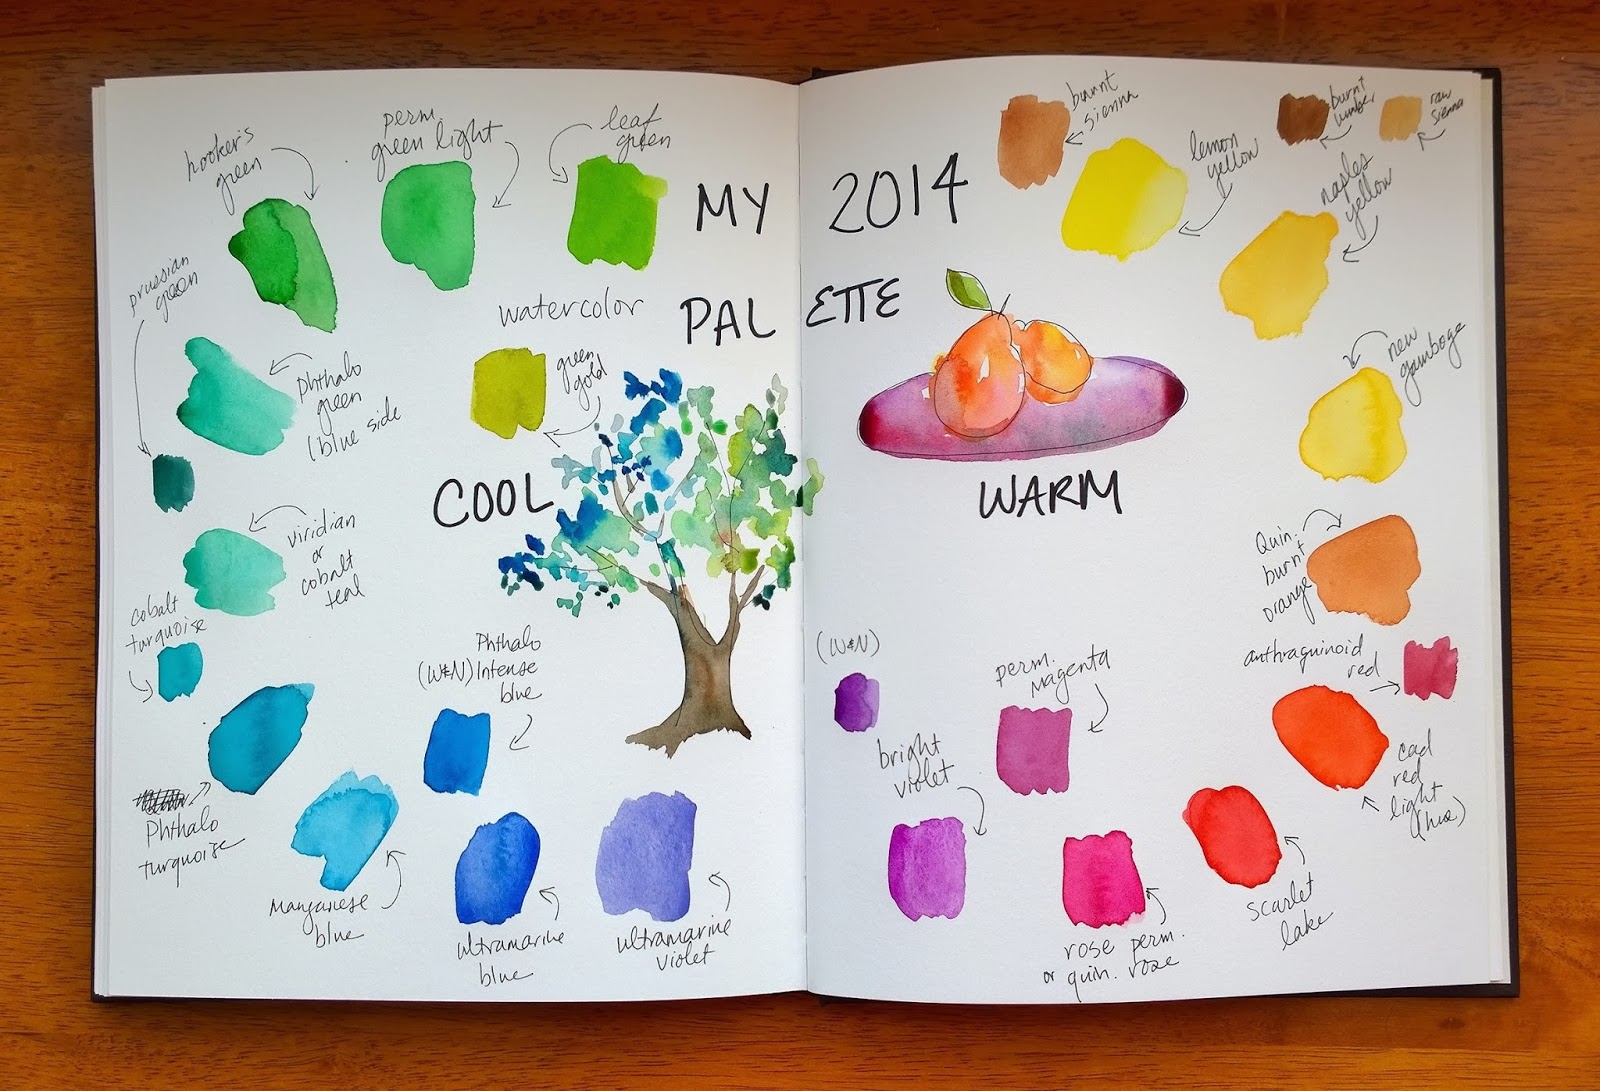 MY 2014
PALETTE
watercolor
COOL
WARM
hooker's
green
perm.
green light
leaf
green
prussian
green
phthalo
green
(blue side
green
gold
viridian
or
cobalt
teal
cobalt
turquoise
Phthalo
turquoise
Manganese
blue
Phthalo
(W&N) Intense
blue
ultramarine
blue
ultramarine
violet
burnt
sienna
lemon
yellow
burnt
umber
raw
sienna
naples
yellow
new
gamboge
Quin.
burnt
orange
anthraquinoid
red
cad
red
light
(hue)
scarlet
lake
rose perm.
or quin. rose
perm.
Magenta
(W&N)
bright
violet